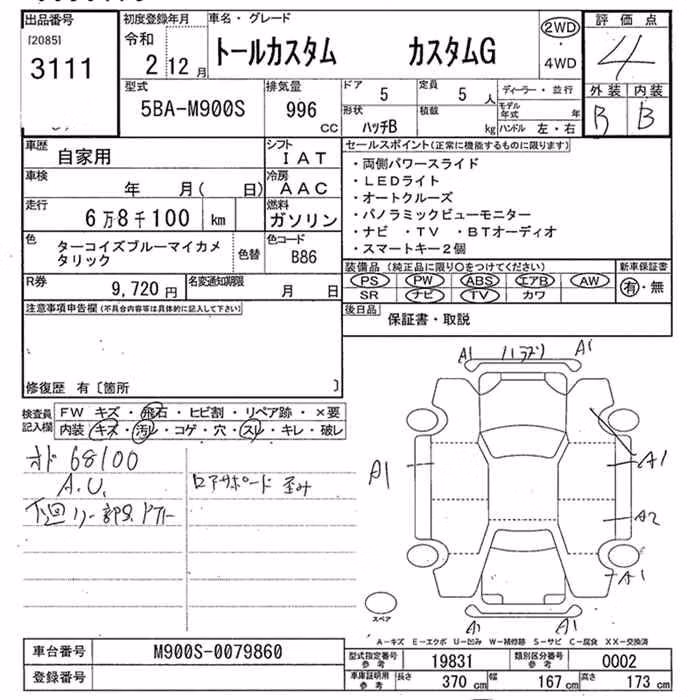 出品番号
[2085]
3111
初度登録年月
令和
2 12 月
車名・グレード
トールカスタム カスタムG
2WD
・
4WD
評価点
4
外装 内装
B B
型式
5BA-M900S
排気量
996 cc
ドア
5
定員
5 人
形状
ハッチB
積載
kg
ディーラー・並行
モデル年式 年
ハンドル 左・右
車歴
自家用
シフト
IAT
車検
年 月( 日)
冷房
AAC
走行
6万8千100 km
燃料
ガソリン
色
ターコイズブルーマイカメタリック
色替
色コード
B86
R券
9,720 円
名変通知期限
月 日
セールスポイント(正常に機能するものに限ります)
・両側パワースライド
・LEDライト
・オートクルーズ
・パノラミックビューモニター
・ナビ ・TV ・BTオーディオ
・スマートキー2個
装備品 (純正品に限り○をつけてください)
PS PW ABS エアB AW
SR ナビ TV カワ
新車保証書
有・無
後日品
保証書・取説
注意事項申告欄(不具合内容等は具体的に記入して下さい)
修復歴 有〔箇所 〕
検査員記入欄
FW キズ・飛石・ヒビ割・リペア跡・×要
内装 キズ・汚レ・コゲ・穴・スレ・キレ・破レ
オド 68100
A.U.
下廻り一部S.
ロアサポート 歪み
A1 A1
A1
A1
A2
A1
A1 A1
スペア
A-キズ E-エクボ U-凹み W-補修跡 S-サビ C-腐食 XX-交換済
車台番号
M900S-0079860
登録番号
型式指定番号参考
19831
類別区分番号参考
0002
車庫証明用参考
長さ 370 cm
幅 167 cm
高さ 173 cm